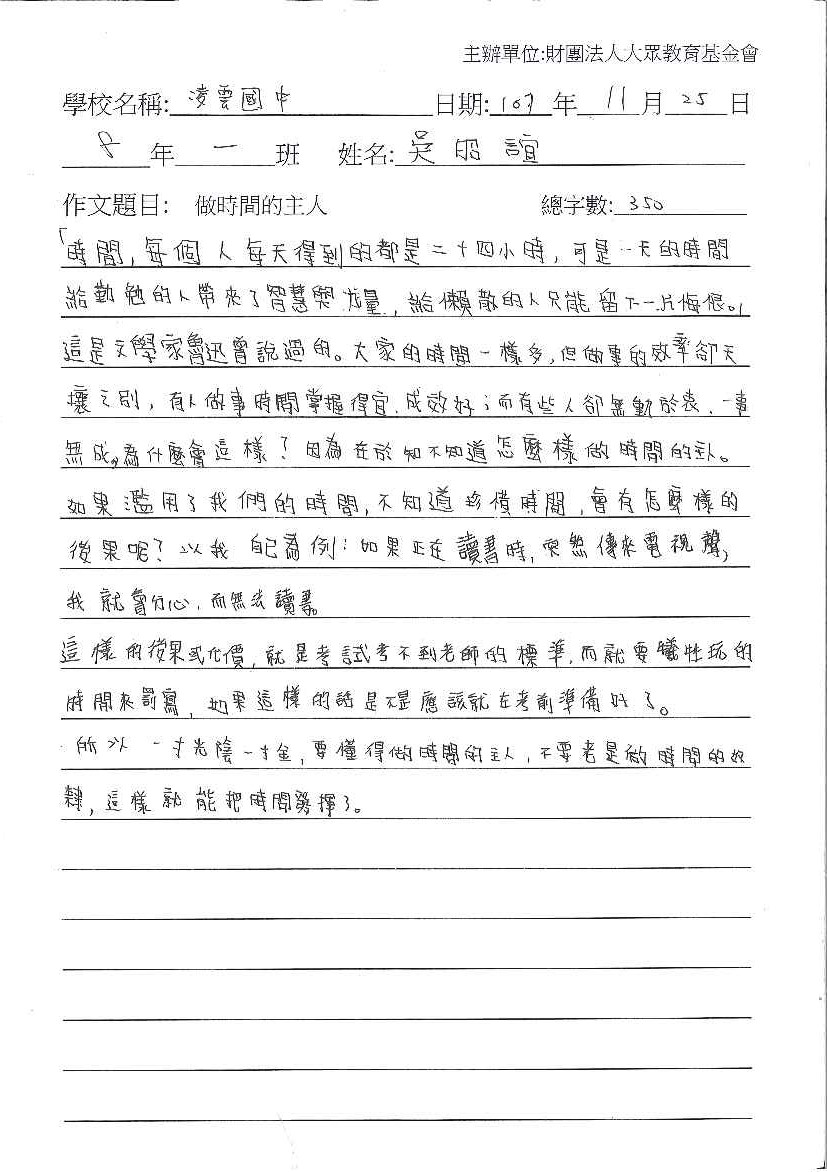 主辦單位:財團法人大眾教育基金會
學校名稱: 凌雲國中 日期: 107 年 11 月 25 日
8 年 一 班 姓名: 吳昭誼
作文題目: 做時間的主人 總字數: 350
「時間,每個人每天得到的都是二十四小時,可是一天的時間
給勤勉的人帶來了智慧與力量,給懶散的人只能留下一片悔恨。」
這是文學家魯迅曾說過的。大家的時間一樣多,但做事的效率卻天
壤之別,有人做事時間掌握得宜、成效好;而有些人卻無動於衷、一事
無成。為什麼會這樣?因為在於知不知道怎麼樣做時間的主人。
如果濫用了我們的時間,不知道珍惜時間,會有怎麼樣的
後果呢?以我自己為例:如果正在讀書時,突然傳來電視聲,
我就會分心,而無法讀書。
這樣的後果或代價,就是考試考不到老師的標準,而就要犧牲玩的
時間來罰寫,如果這樣的話是不是應該就在考前準備好了。
所以一寸光陰一寸金,要懂得做時間的主人,不要老是做時間的奴
隸,這樣就能把時間發揮了。